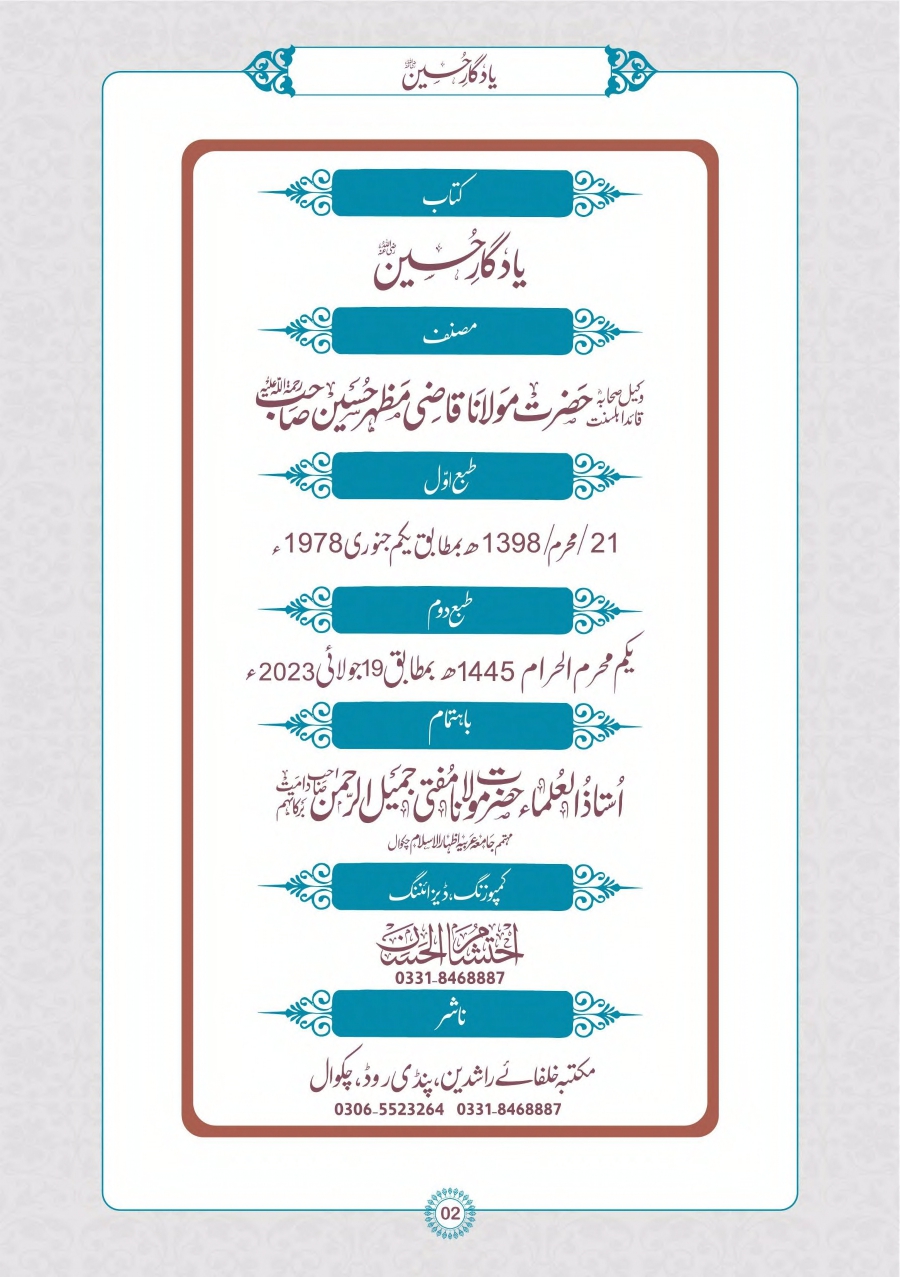 یادگارِ حُسین ؓ
کتاب
یادگارِ حُسین رضی اللہ عنہ
مصنف
وکیل صحابہؓ قائد اہلسنت حَضرت مَولانَا قاضی مَظہر حُسَین صَاحب رحمۃ اللہ علیہ
طبع اوّل
21/محرم/1398ھ بمطابق یکم جنوری1978ء
طبع دوم
یکم محرم الحرام 1445ھ بمطابق19جولائی2023ء
باہتمام
اُستاذُ العُلماء حضرت مولانا مُفتی جمیل الرحمن صَاحب دامت برکاتہم
مہتمم جامعہ عربیہ اظہار الاسلام چکوال
کمپوزنگ، ڈیزائننگ
احتشام الحسان
0331-8468887
ناشر
مکتبہ خلفائے راشدین، پنڈی روڈ، چکوال
0306-5523264 0331-8468887
02